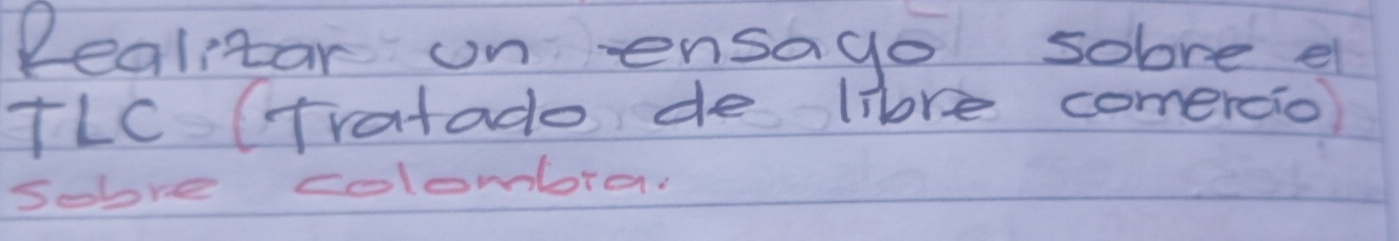 Realizar un ensayo sobre el
TLC (Tratado de libre comercio)
sobre colombia.